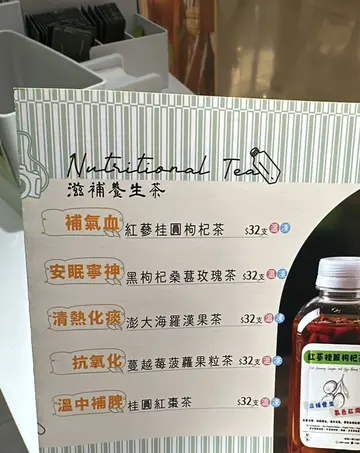 Nutritional Tea
滋補養生茶
補氣血 紅蔘桂圓枸杞茶 $32支 溫 凍
安眠寧神 黑枸杞桑葚玫瑰茶 $32支 溫 凍
清熱化痰 澎大海羅漢果茶 $32支 溫 凍
抗氧化 蔓越莓菠蘿果粒茶 $32支 溫 凍
溫中補脾 桂圓紅棗茶 $32支 溫 凍
紅蔘桂圓枸杞茶
滋補養生